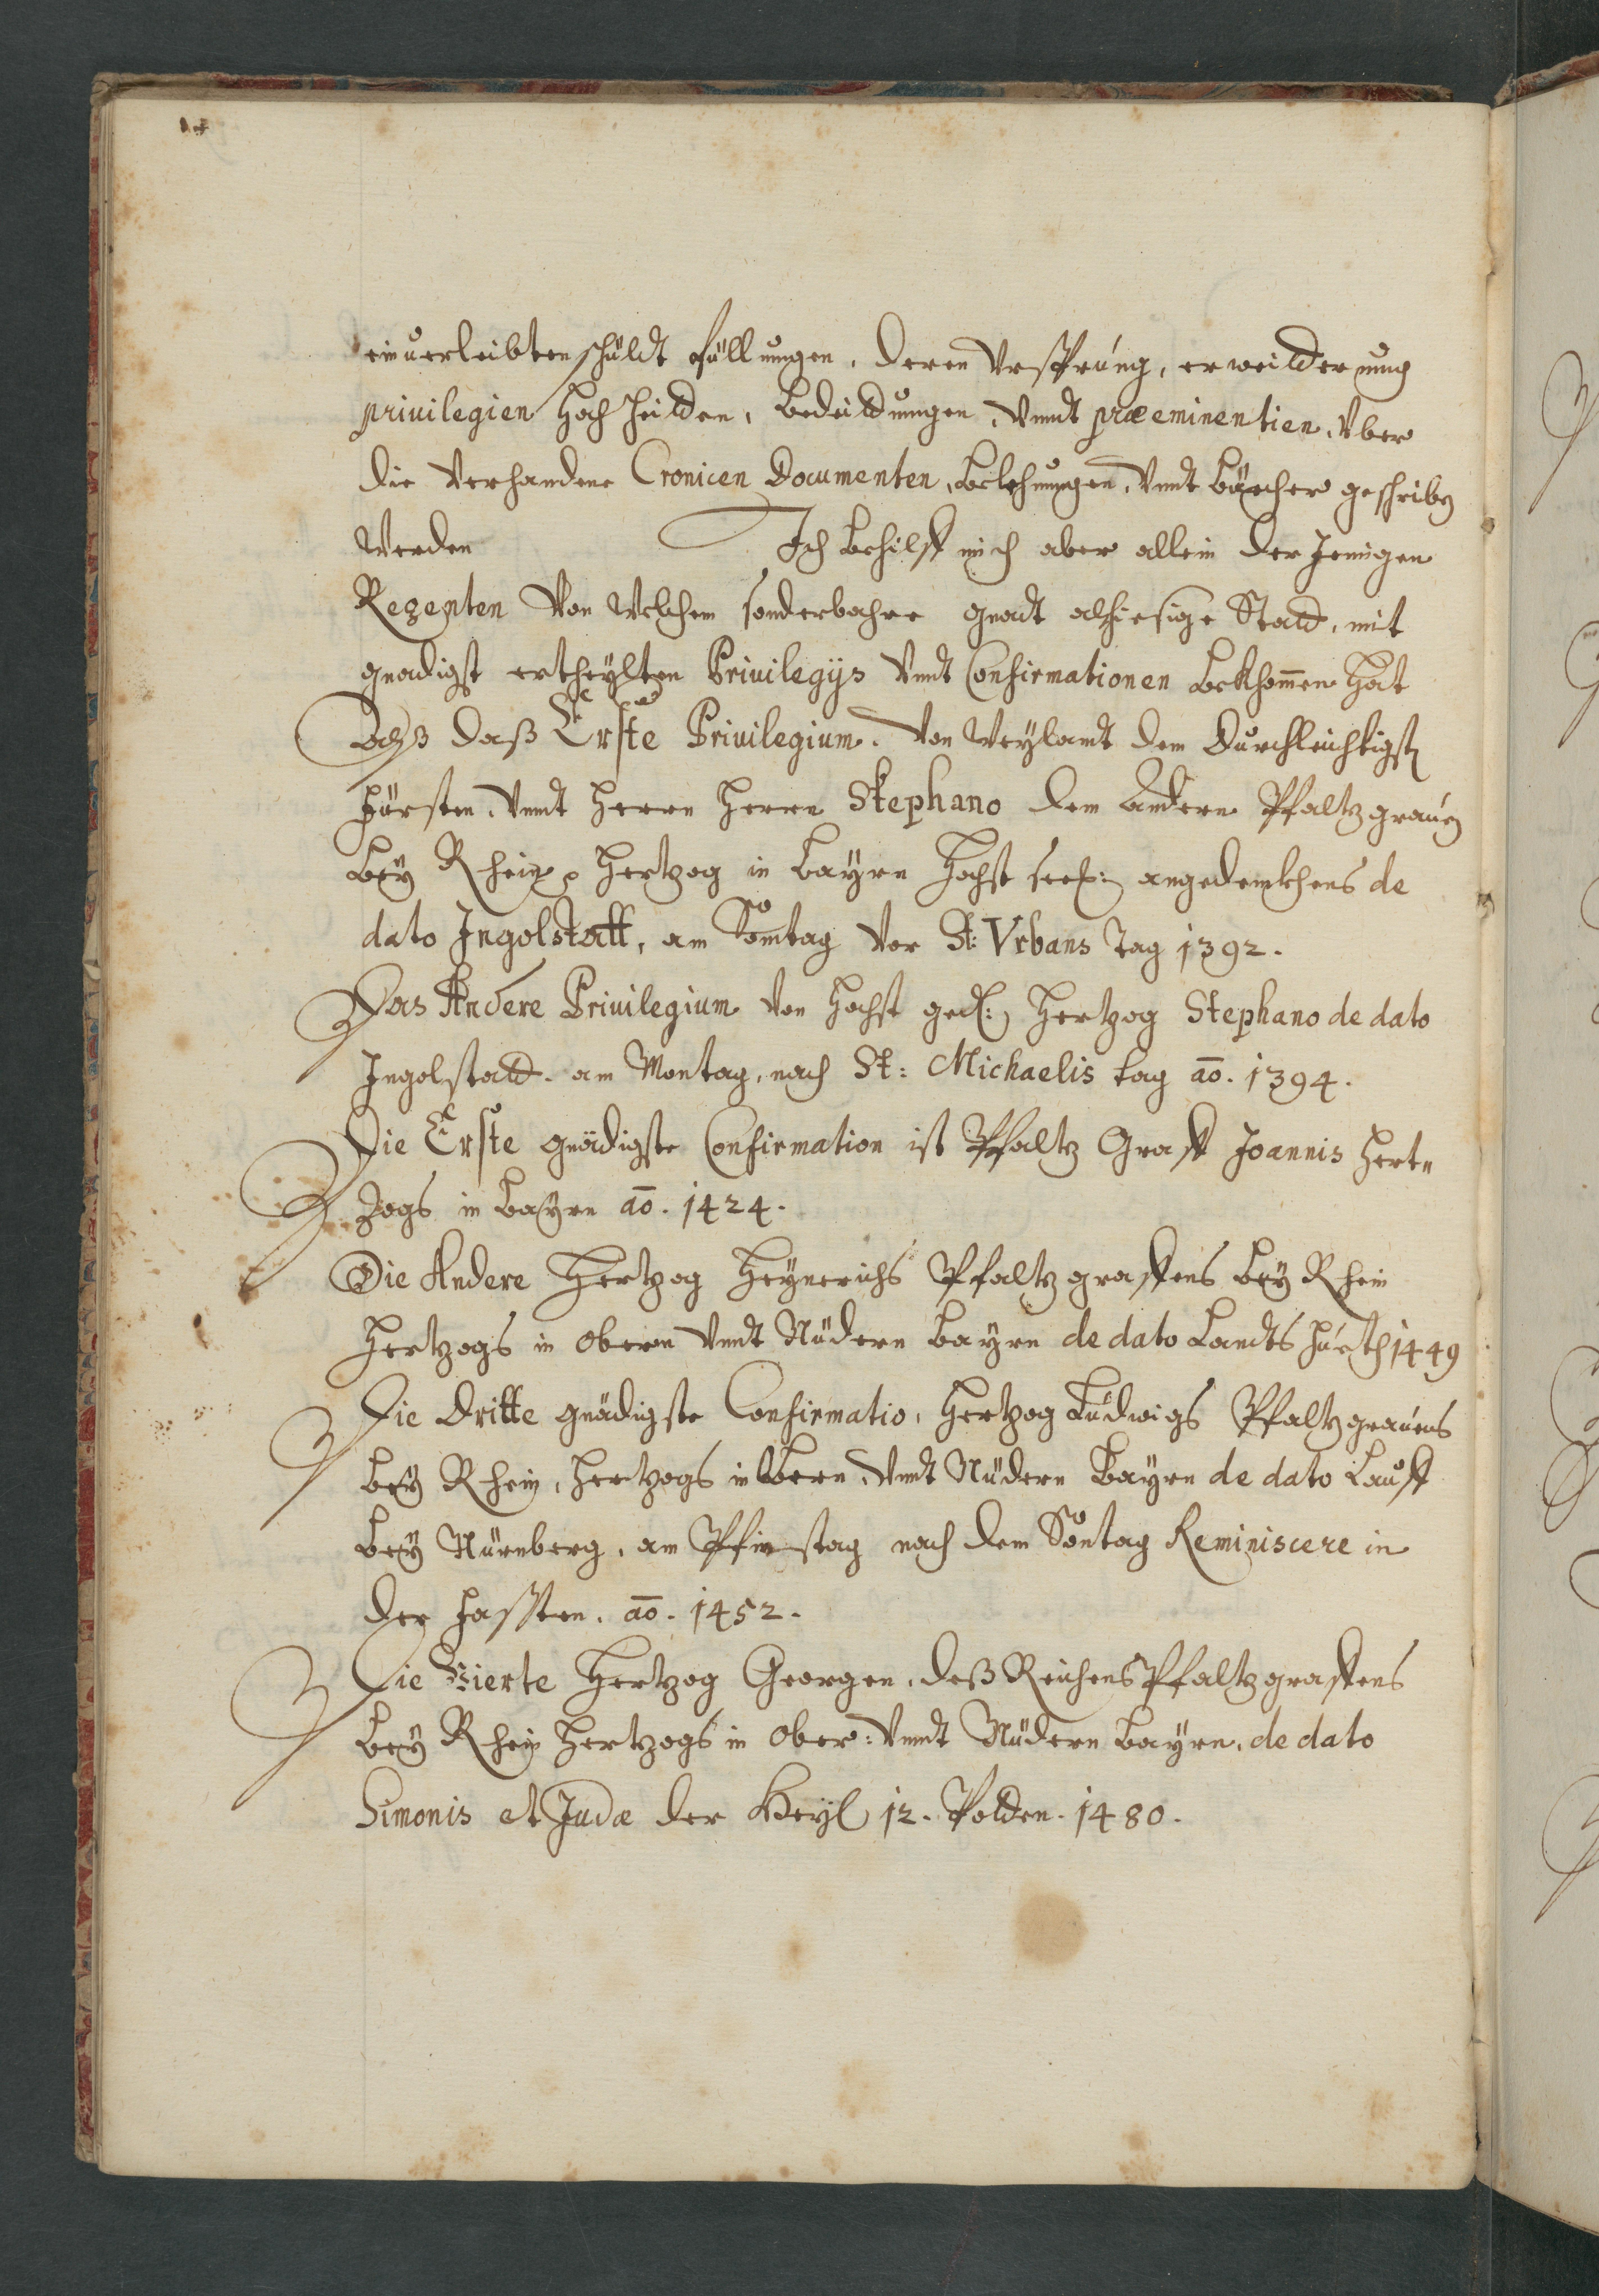 einuerleibten schildt füllungen, deren Vrsprung, erweitterung
priuilegien Hochheiten, bedeittungen, Vnndt præeminentien, Vber
die Verhandene Cronicen Documenten, belehnungen, Vnndt büecher geschriben
Werden Ich behilff mich aber allein der Jenigen
Regenten Von Welchem sonderbahre gnadt alhiesige Statt, mit
gnadigst ertheylten Priuilegijs Vndt Confirmationen bekhommen Hat
Alß daß Erste Priuilegium. Von Weylandt dem Durchleichtigsten
Fürsten, Vnndt Herrn Herrn Stephano dem Andern Pfaltzgrauen
bey Rhein, Hertzog in bayrn Hochst seel: angedenckhens de
dato Ingolstatt, am Sontag Vor St: Vrbans Tag 1392.
Das Andere Priuilegium Von Hochst ged: Hertzog Stephano de dato
Ingolstatt. am Montag, nach St: Michaelis tag ao. 1394.
Die Erste gnädigste Confirmation ist Pfaltz Graff Joannis Hert=
zogs in bayrn ao. 1424.
Die Andere Hertzog Heynrichs Pfaltzgraffens bey Rhein
Hertzogs in obern Vnndt Nüdern bayrn de dato Landtshueth 1449
Die Dritte gnädigste Confirmatio, Hertzog Ludwigs Pfaltzgrauens
bey Rhein, Hertzogs in obern, Vnndt Nüdern Bayrn de dato Lauff
bey Nürnberg, am Pfinstag nach dem Sontag Reminiscere in
der Fassten. ao. 1452.
Die Vierte Hertzog Georgen, deß Reichens Pfaltzgraffens
bey Rhein Hertzogs in ober: Vnndt Nüdern bayrn, de dato
Simonis et Judæ der Heyl 12. Potten. 1480.